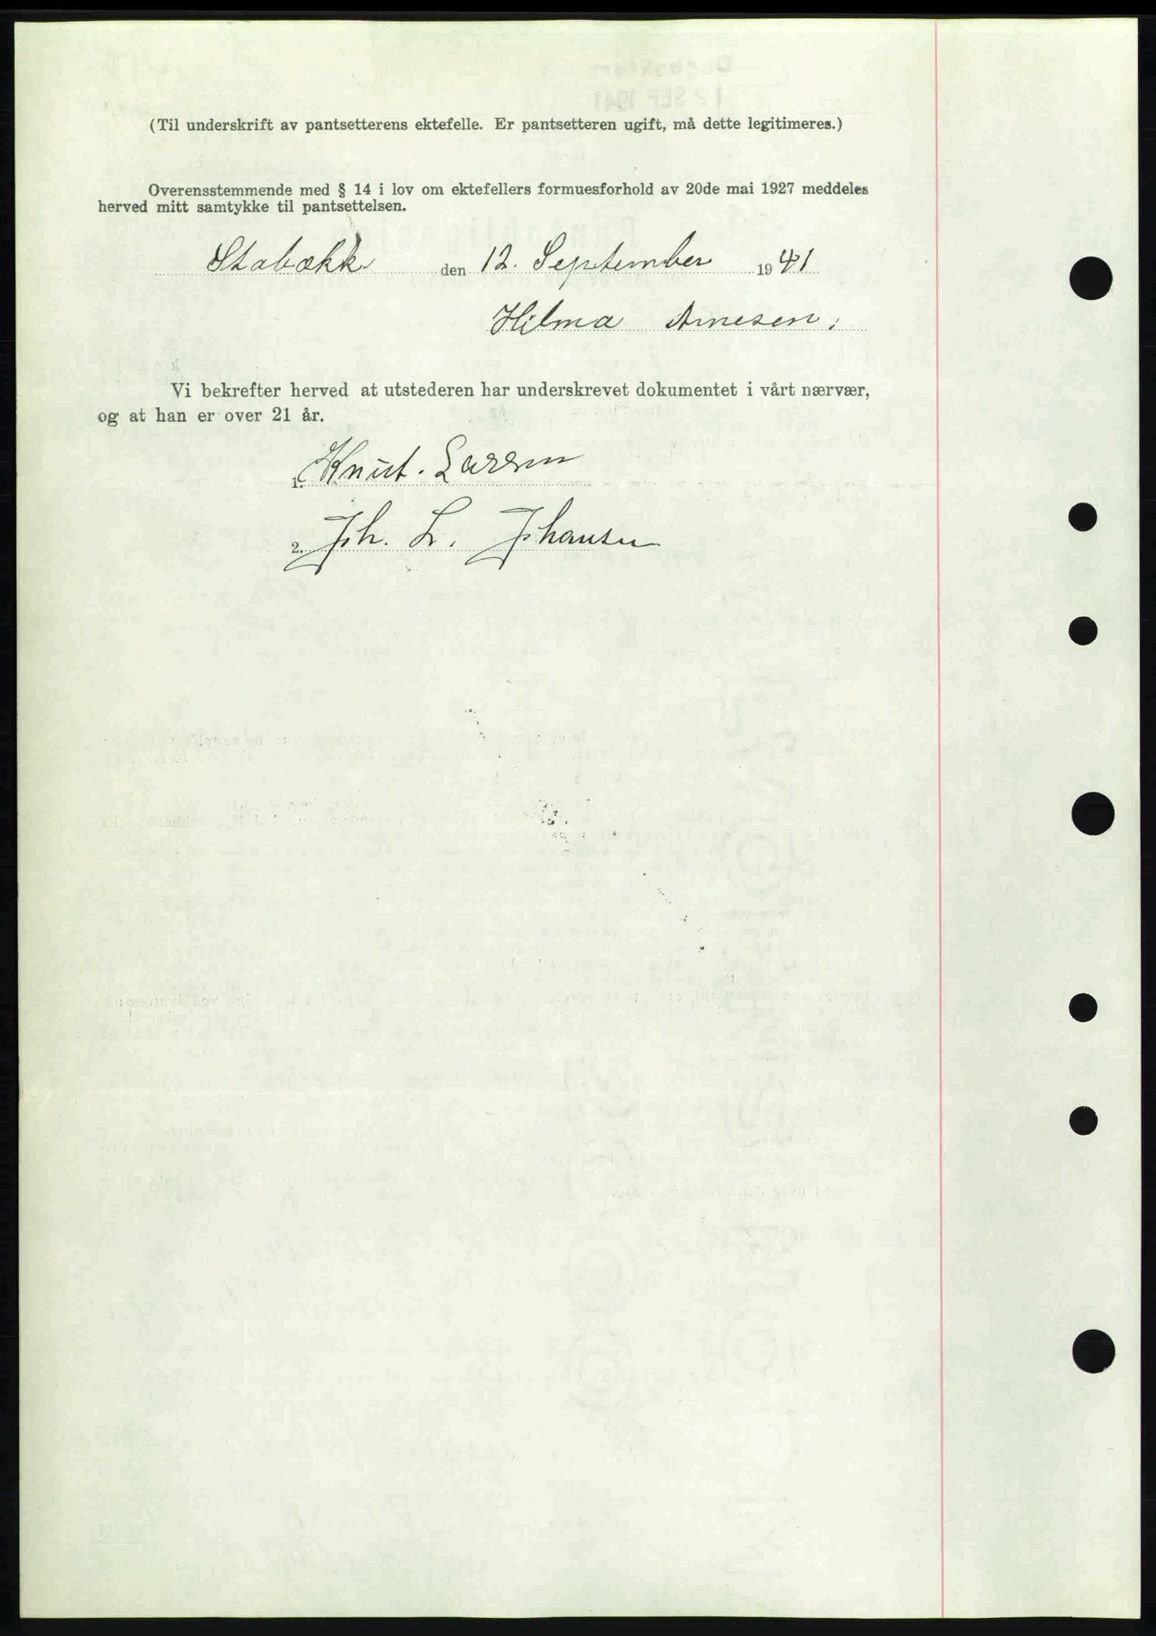 (Til underskrift av pantsetterens ektefelle. Er pantsetteren ugift, må dette legitimeres.)
Overensstemmende med § 14 i lov om ektefellers formuesforhold av 20de mai 1927 meddeles
herved mitt samtykke til pantsettelsen.
Stabækk den 12. September 1941
Hilma Arnesen.
Vi bekrefter herved at utstederen har underskrevet dokumentet i vårt nærvær,
og at han er over 21 år.
1. Knut. Larsen
2. Joh. L. Johansen